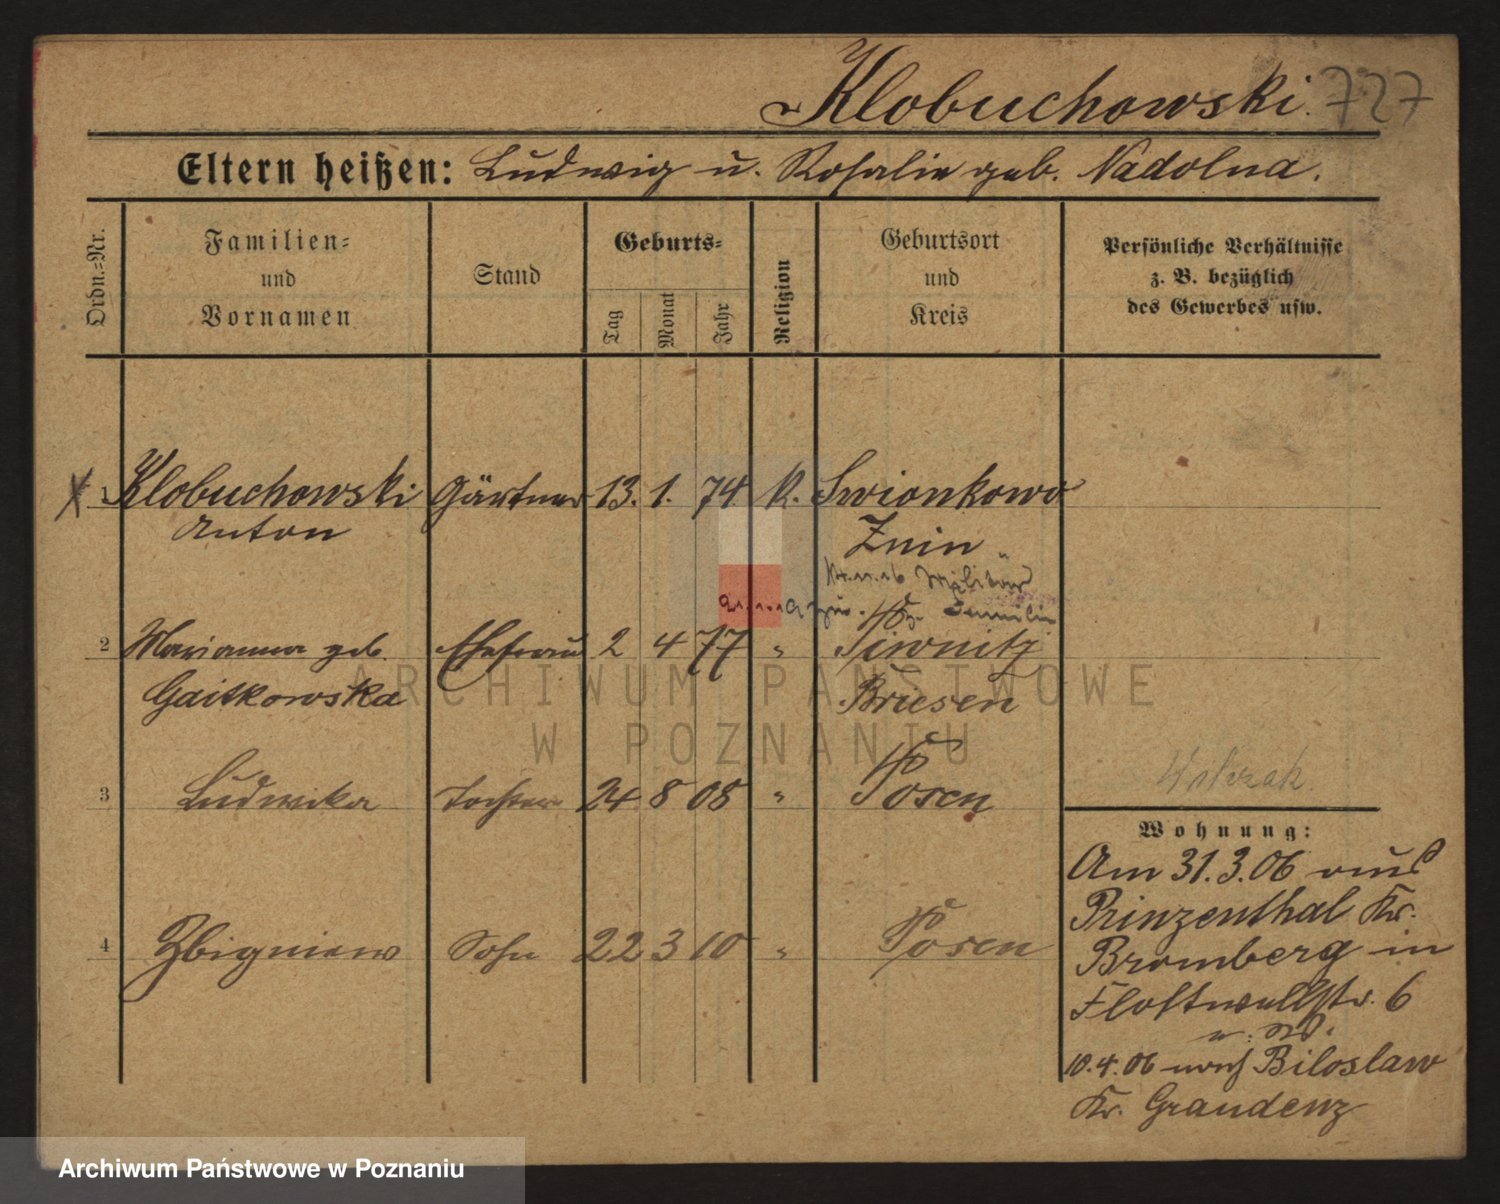 Klobuchowski. 727
Eltern heißen: Ludwig u. Rosalie geb. Nadolna.
Ordn.=Nr.
Familien=
und
Vornamen
Stand
Geburts=
Tag
Monat
Jahr
Religion
Geburtsort
und
Kreis
Persönliche Verhältnisse
z. B. bezüglich
des Gewerbes usw.
1 Klobuchowski Gärtner 13. 1. 74 K. Swionkowo
Anton Znin
Militär
2 Marianna geb. Ehefrau 2 4 77 "
Gaitkowska Briesen
3 Ludwika Tochter 24 8 08 " Posen
4 Zbigniew Sohn 22 3 10 " Posen
Wohnung:
Am 31.3.06 aus
Prinzenthal Kr.
Bromberg in
Flottwellstr. 6
10.4.06 nach Biloslaw
Kr. Graudenz
ARCHIWUM PAŃSTWOWE
W POZNANIU
Archiwum Państwowe w Poznaniu